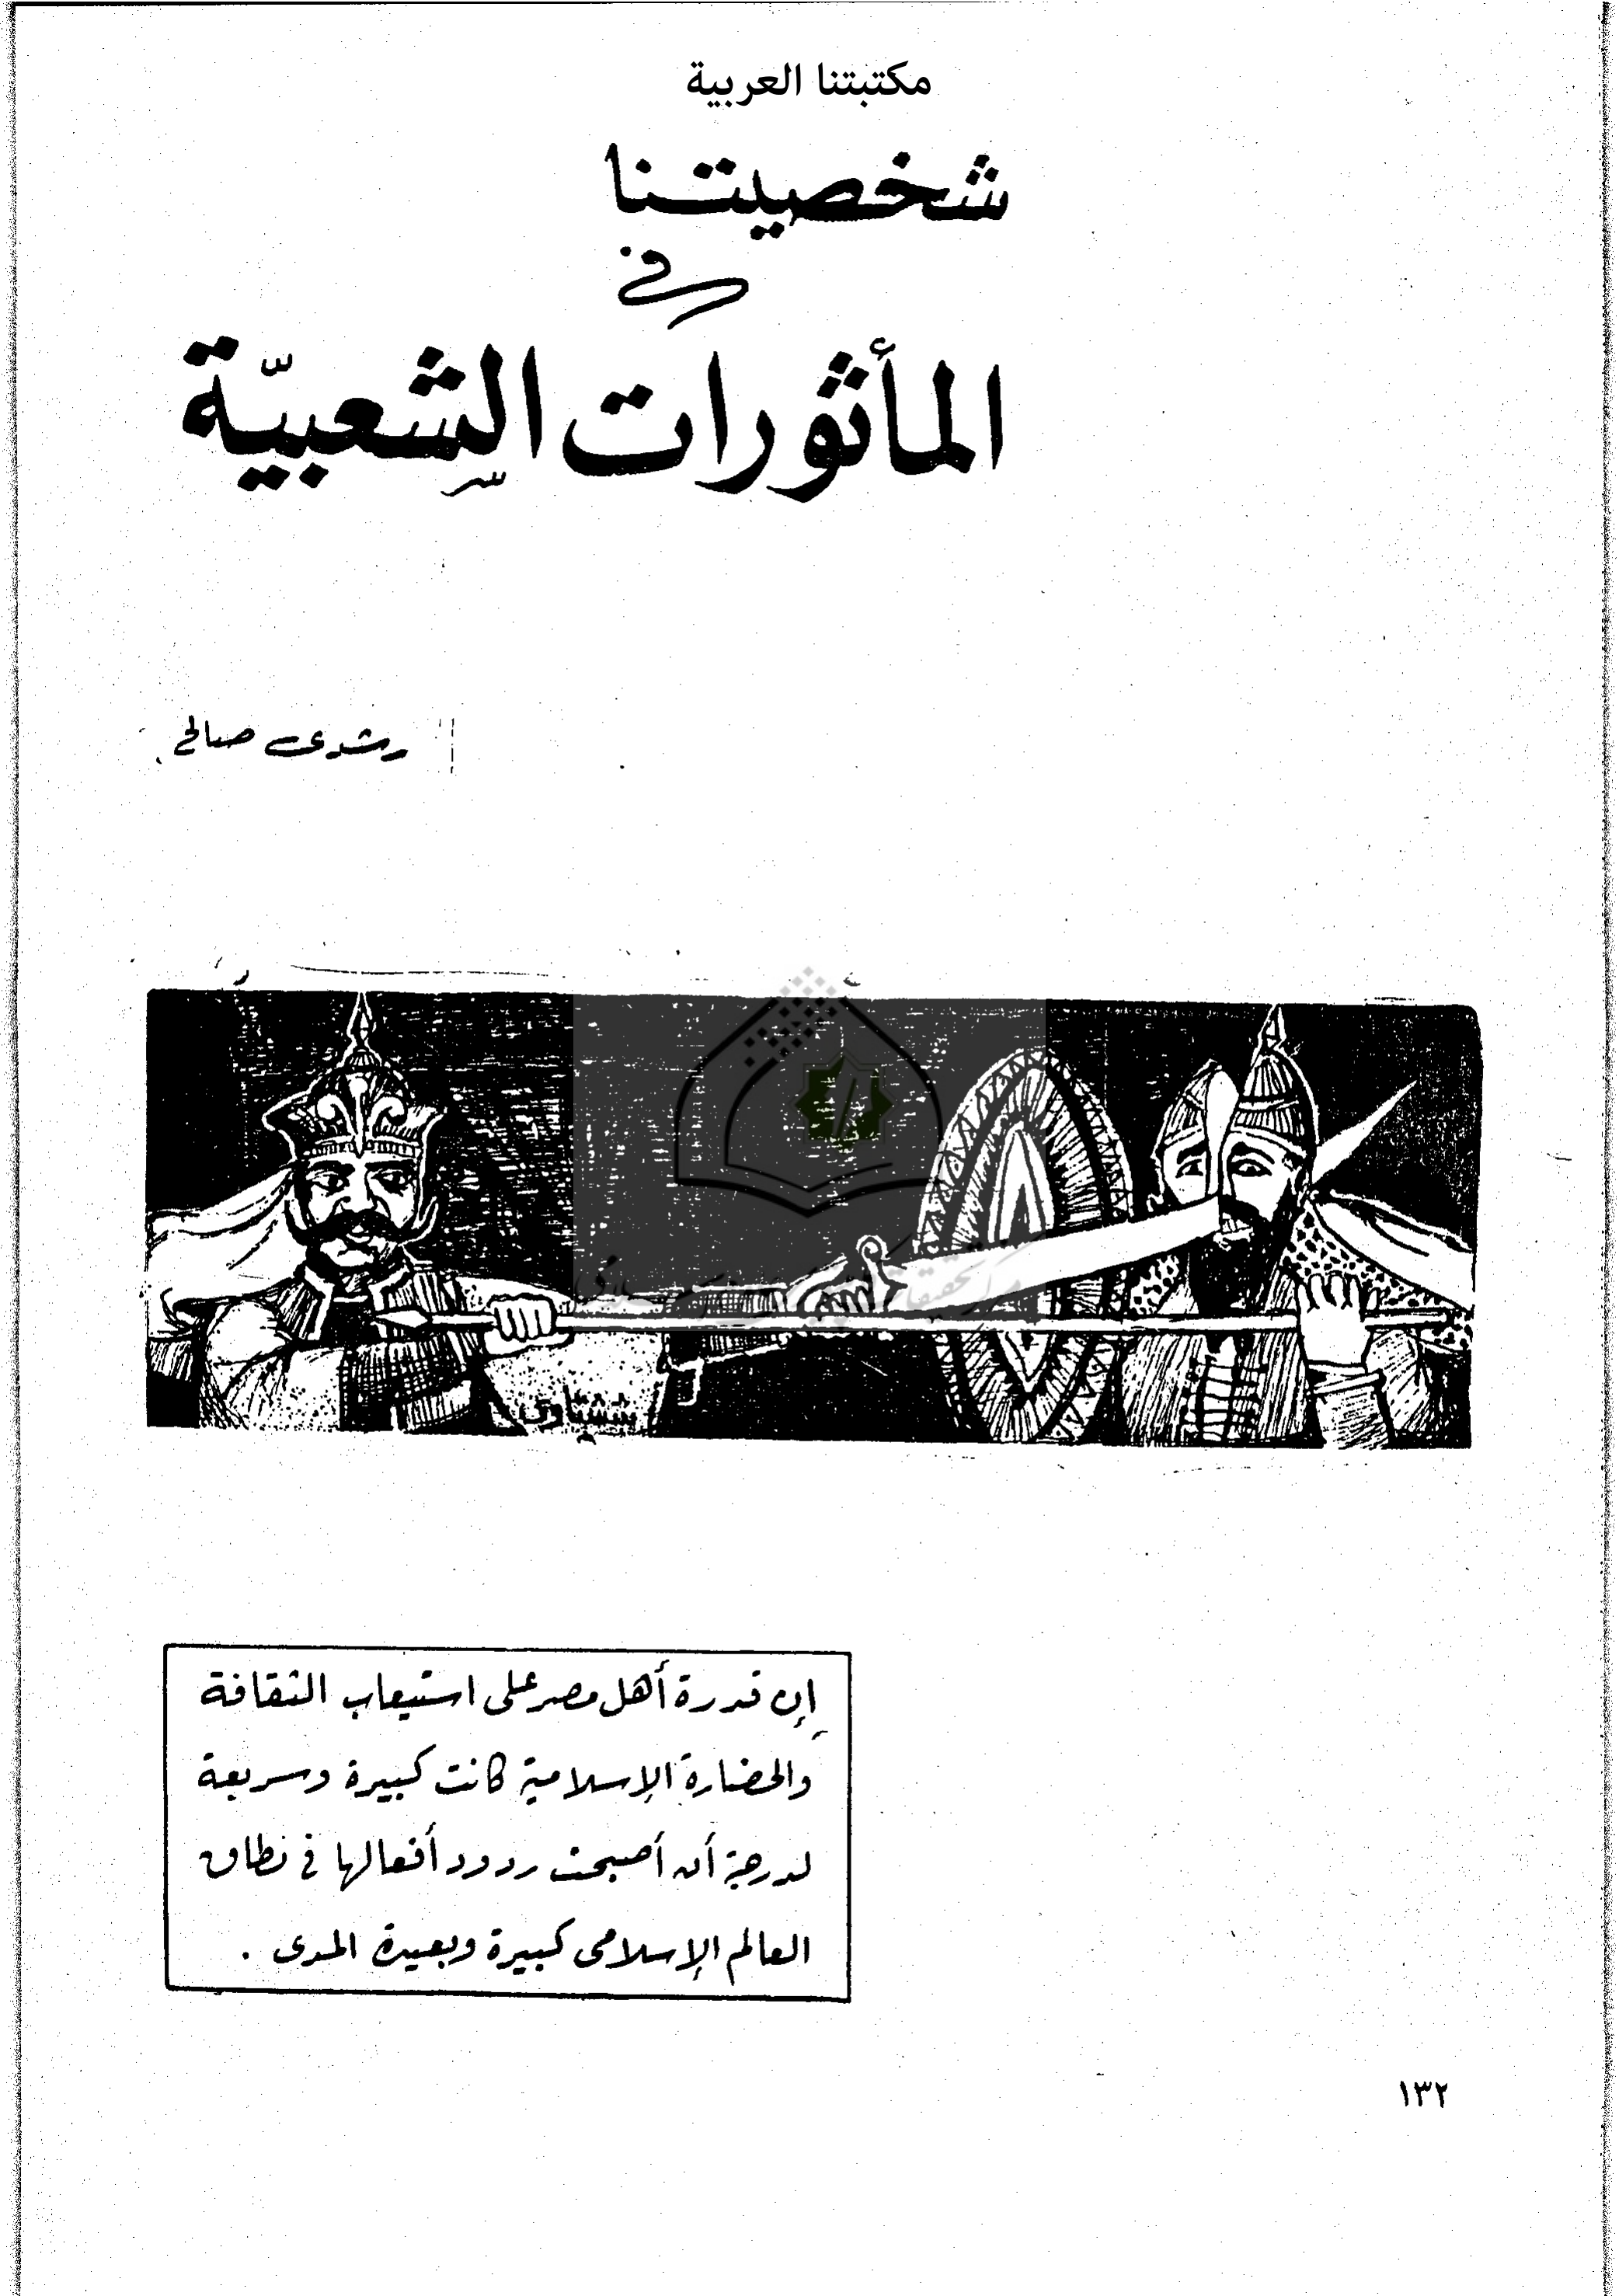 مكتبتنا العربية
شخصيتنا
في
المأثورات الشعبيّة
رشدى صالح
إن قدرة أهل مصر على استيعاب الثقافة
والحضارة الإسلامية كانت كبيرة وسريعة
لدرجة أن أصبحت ردود أفعالها في نطاق
العالم الإسلامى كبيرة وبعيدة المدى .
١٣٢